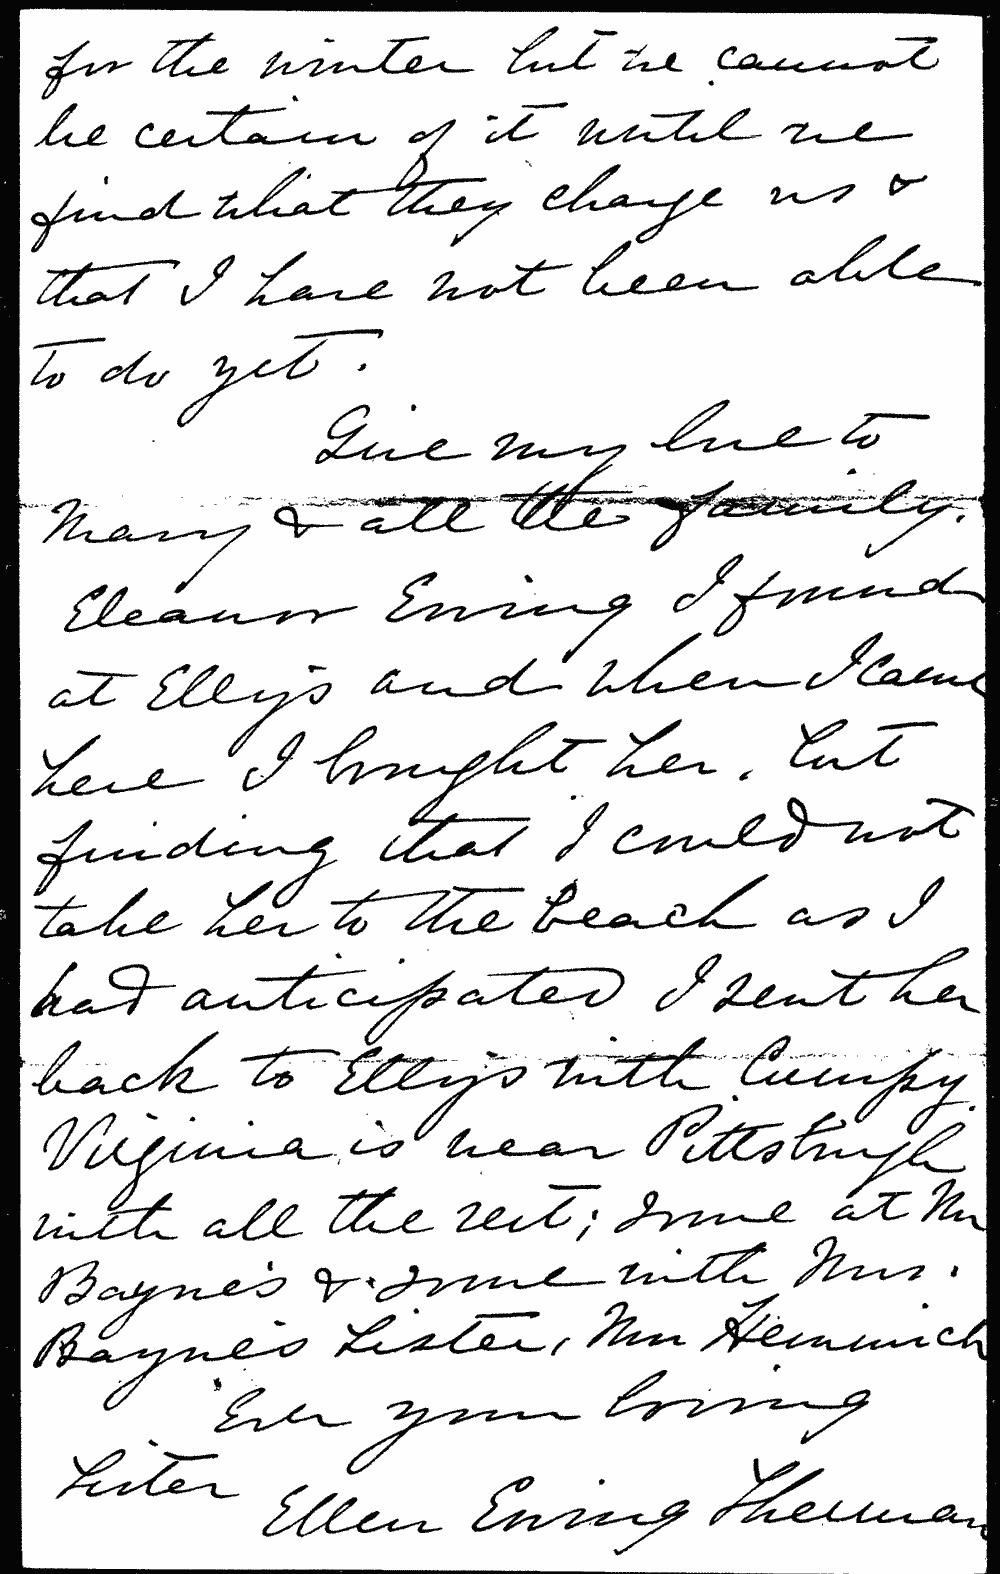 for the winter but we cannot
be certain of it until we
find what they charge us &
that I have not been able
to do yet.
Give my love to
Mary & all the family.
Eleanor Ewing I found
at Elly's and when I came
here I brought her, but
finding that I could not
take her to the beach as I
had anticipated I sent her
back to Elly's with Cumpy.
Virginia is near Pittsburgh
with all the rest; some at Mr
Bayne's & some with Mrs.
Bayne's Sister, Mrs
Ever your loving
Sister
Ellen Ewing Sherman